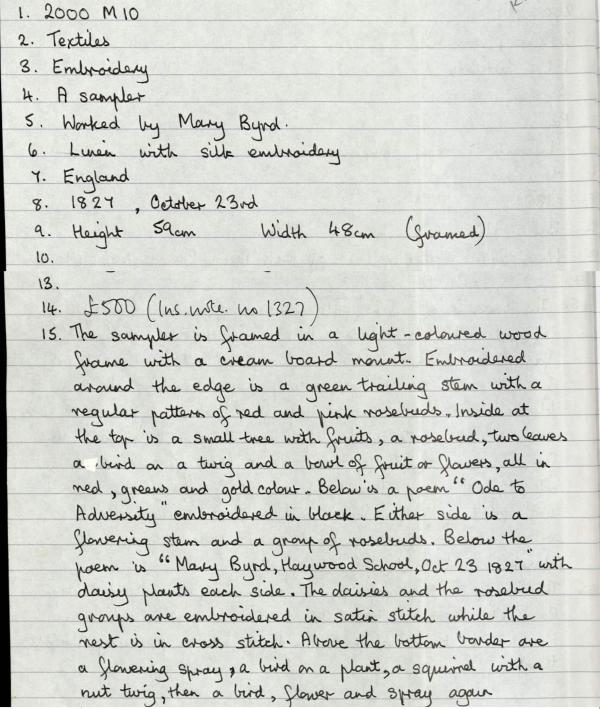 1. 2000 M10
2. Textiles
3. Embroidery
4. A sampler
5. Worked by Mary Byrd.
6. Linen with silk embroidery
7. England
8. 1827, October 23rd
9. Height 59cm Width 48cm (framed)
10.
13.
14. £500 (Ins. note. no 1327)
15. The sampler is framed in a light-coloured wood
frame with a cream board mount. Embroidered
around the edge is a green trailing stem with a
regular pattern of red and pink rosebuds. Inside at
the top is a small tree with fruits, a rosebud, two leaves
a bird on a twig and a bowl of fruit or flowers, all in
red, greens and gold colour. Below is a poem "Ode to
Adversity" embroidered in black. Either side is a
flowering stem and a group of rosebuds. Below the
poem is "Mary Byrd, Haywood School, Oct 23 1827" with
daisy plants each side. The daisies and the rosebud
groups are embroidered in satin stitch while the
rest is in cross stitch. Above the bottom border are
a flowering spray, a bird on a plant, a squirrel with a
nut twig, then a bird, flower and spray again